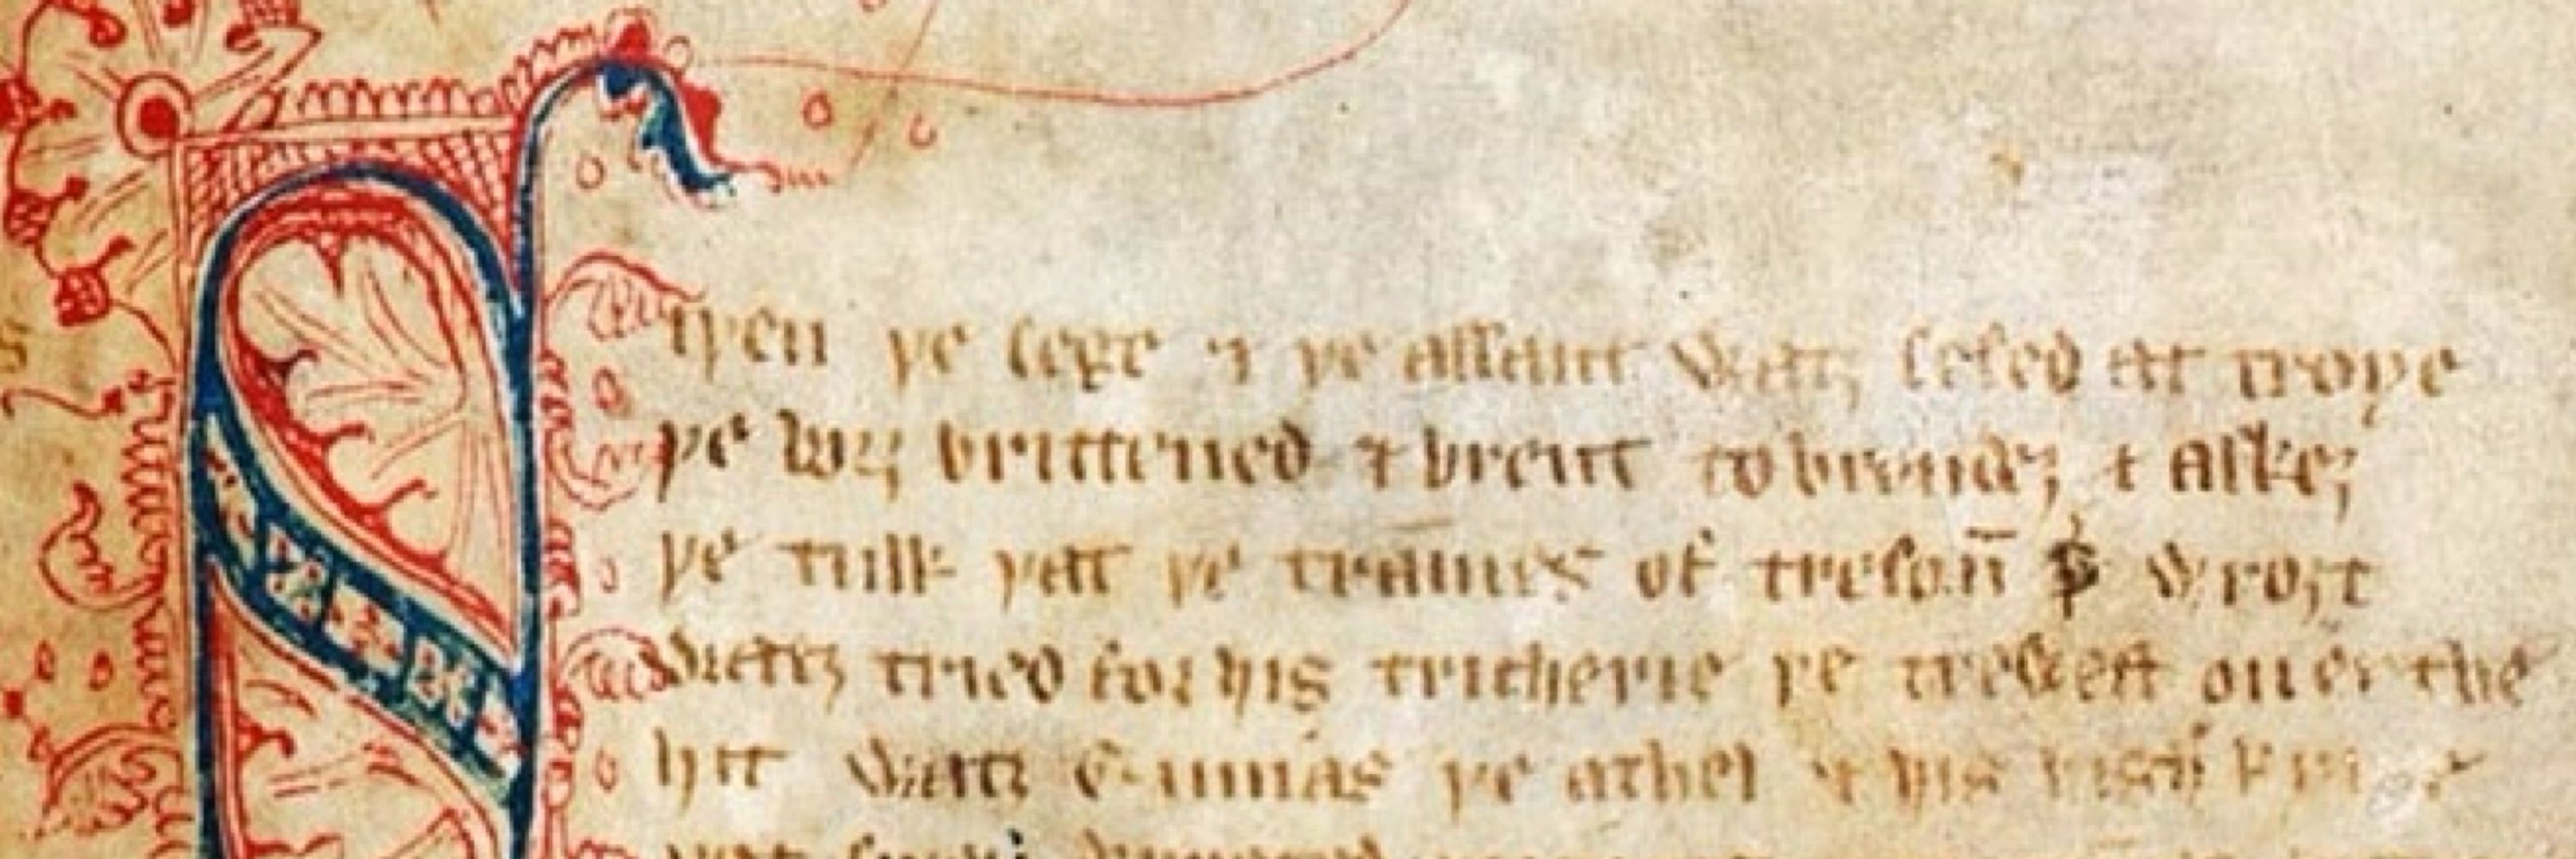 Siþen þe sege & þe assaut watz sesed at troye
þe borȝ brittened & brent to brondeȝ & askez
þe tulk þat þe trammes of tresoun þer wroȝt
watz tried for his tricherie þe trewest on erthe
hit watz Ennias þe athel & his highe kynde